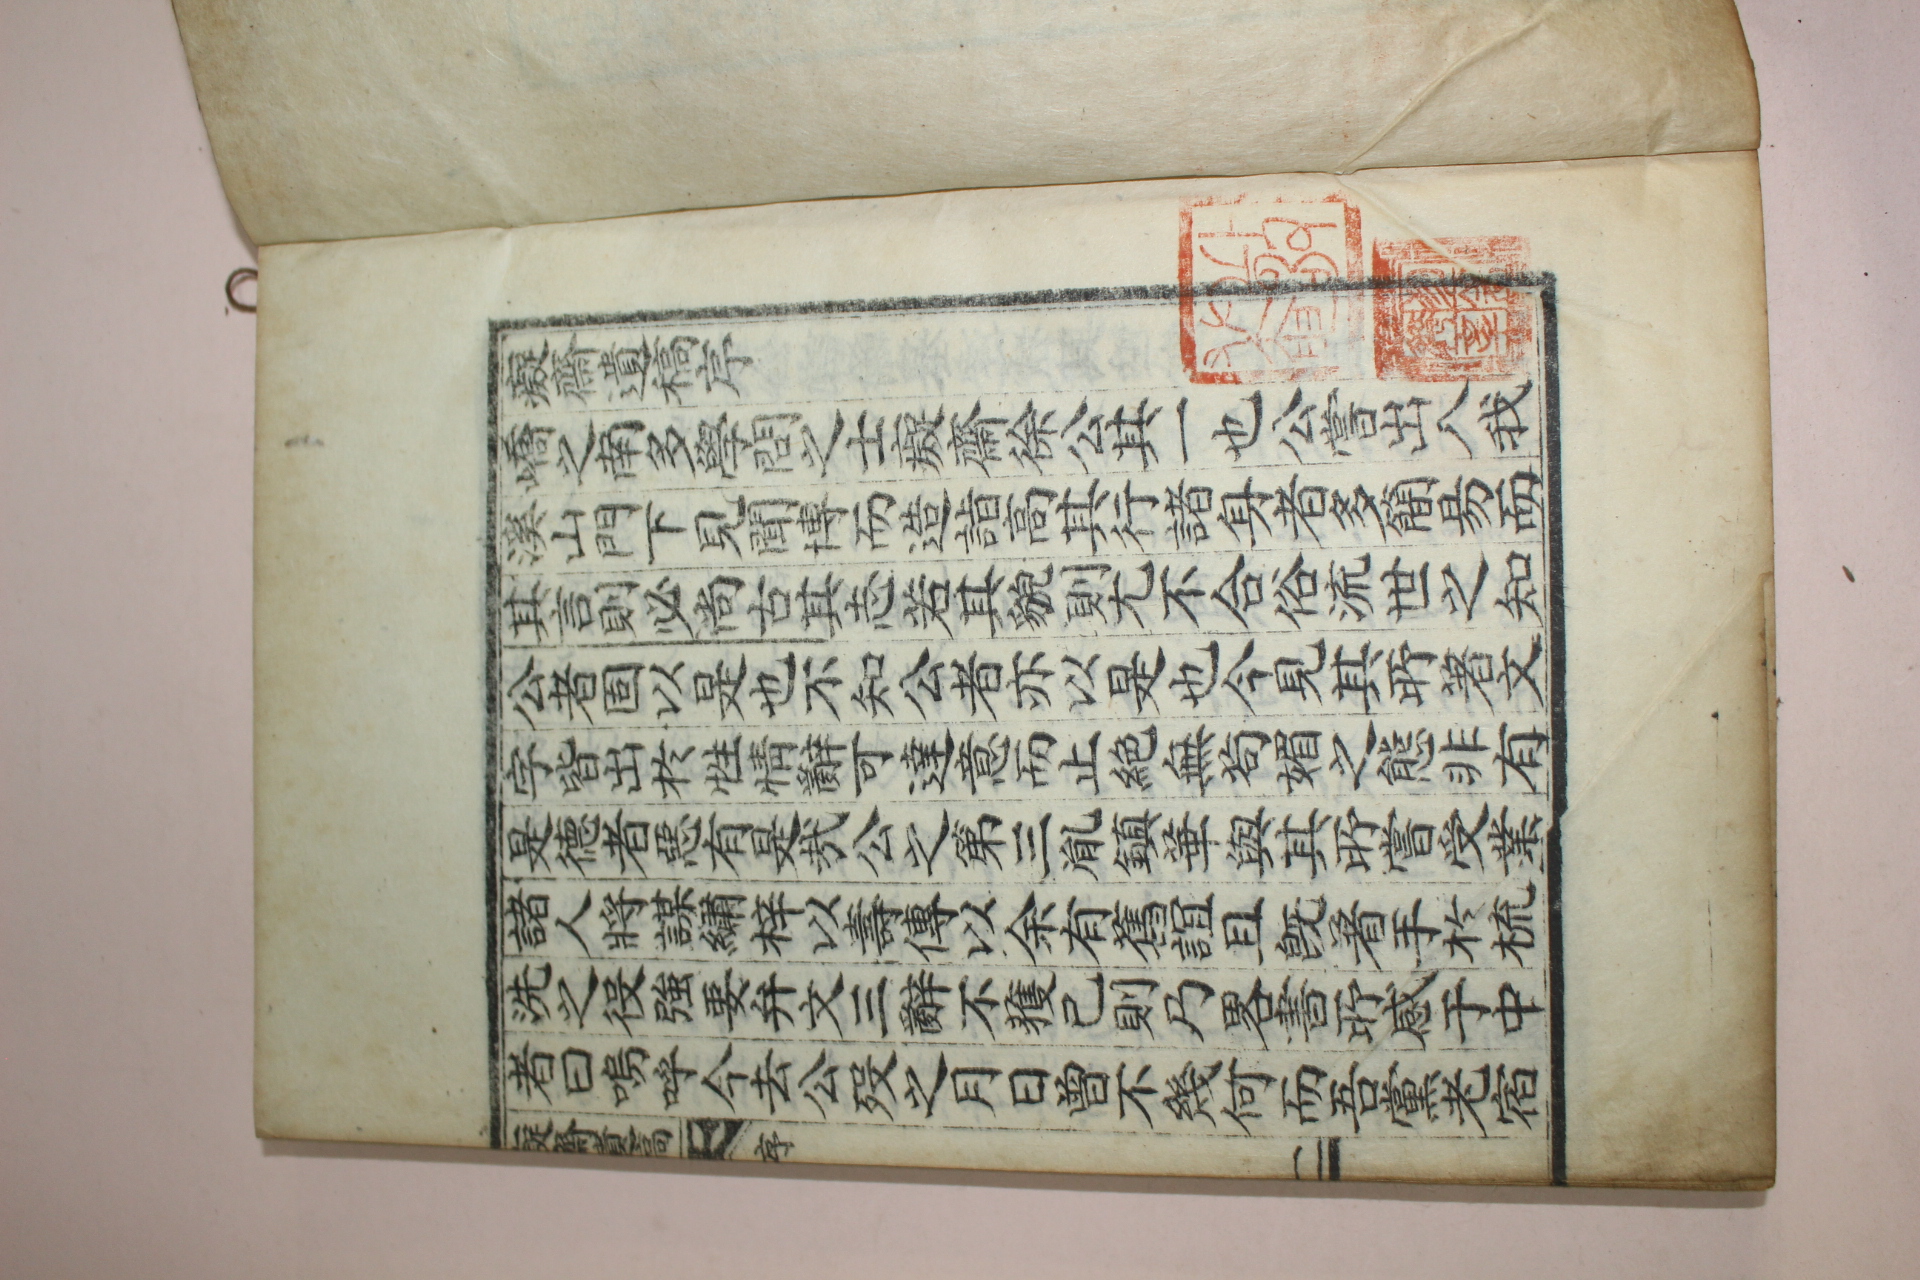 癡齋遺稿序
嶠之南多學問之士癡齋徐公其一也公嘗出入我
溪山門下見聞博而造詣高其行諸身者多簡易而
其言則必尚古其志若其貌則尤不合俗流世之知
公者固以是也不知公者亦以是也今見其所著文
字皆出於性情辭可達意而止絶無苟媚之態非有
是德者惡有是哉公之第三胤鎮華與其所嘗受業
諸人將謀繡梓以壽傳以余有舊誼且旣著手於梳
洗之役強要弁文三辭不獲已則乃畧書所感于中
者曰嗚呼今去公歿之月日曾不幾何而吾黨老宿
癡齋遺稿
序
二